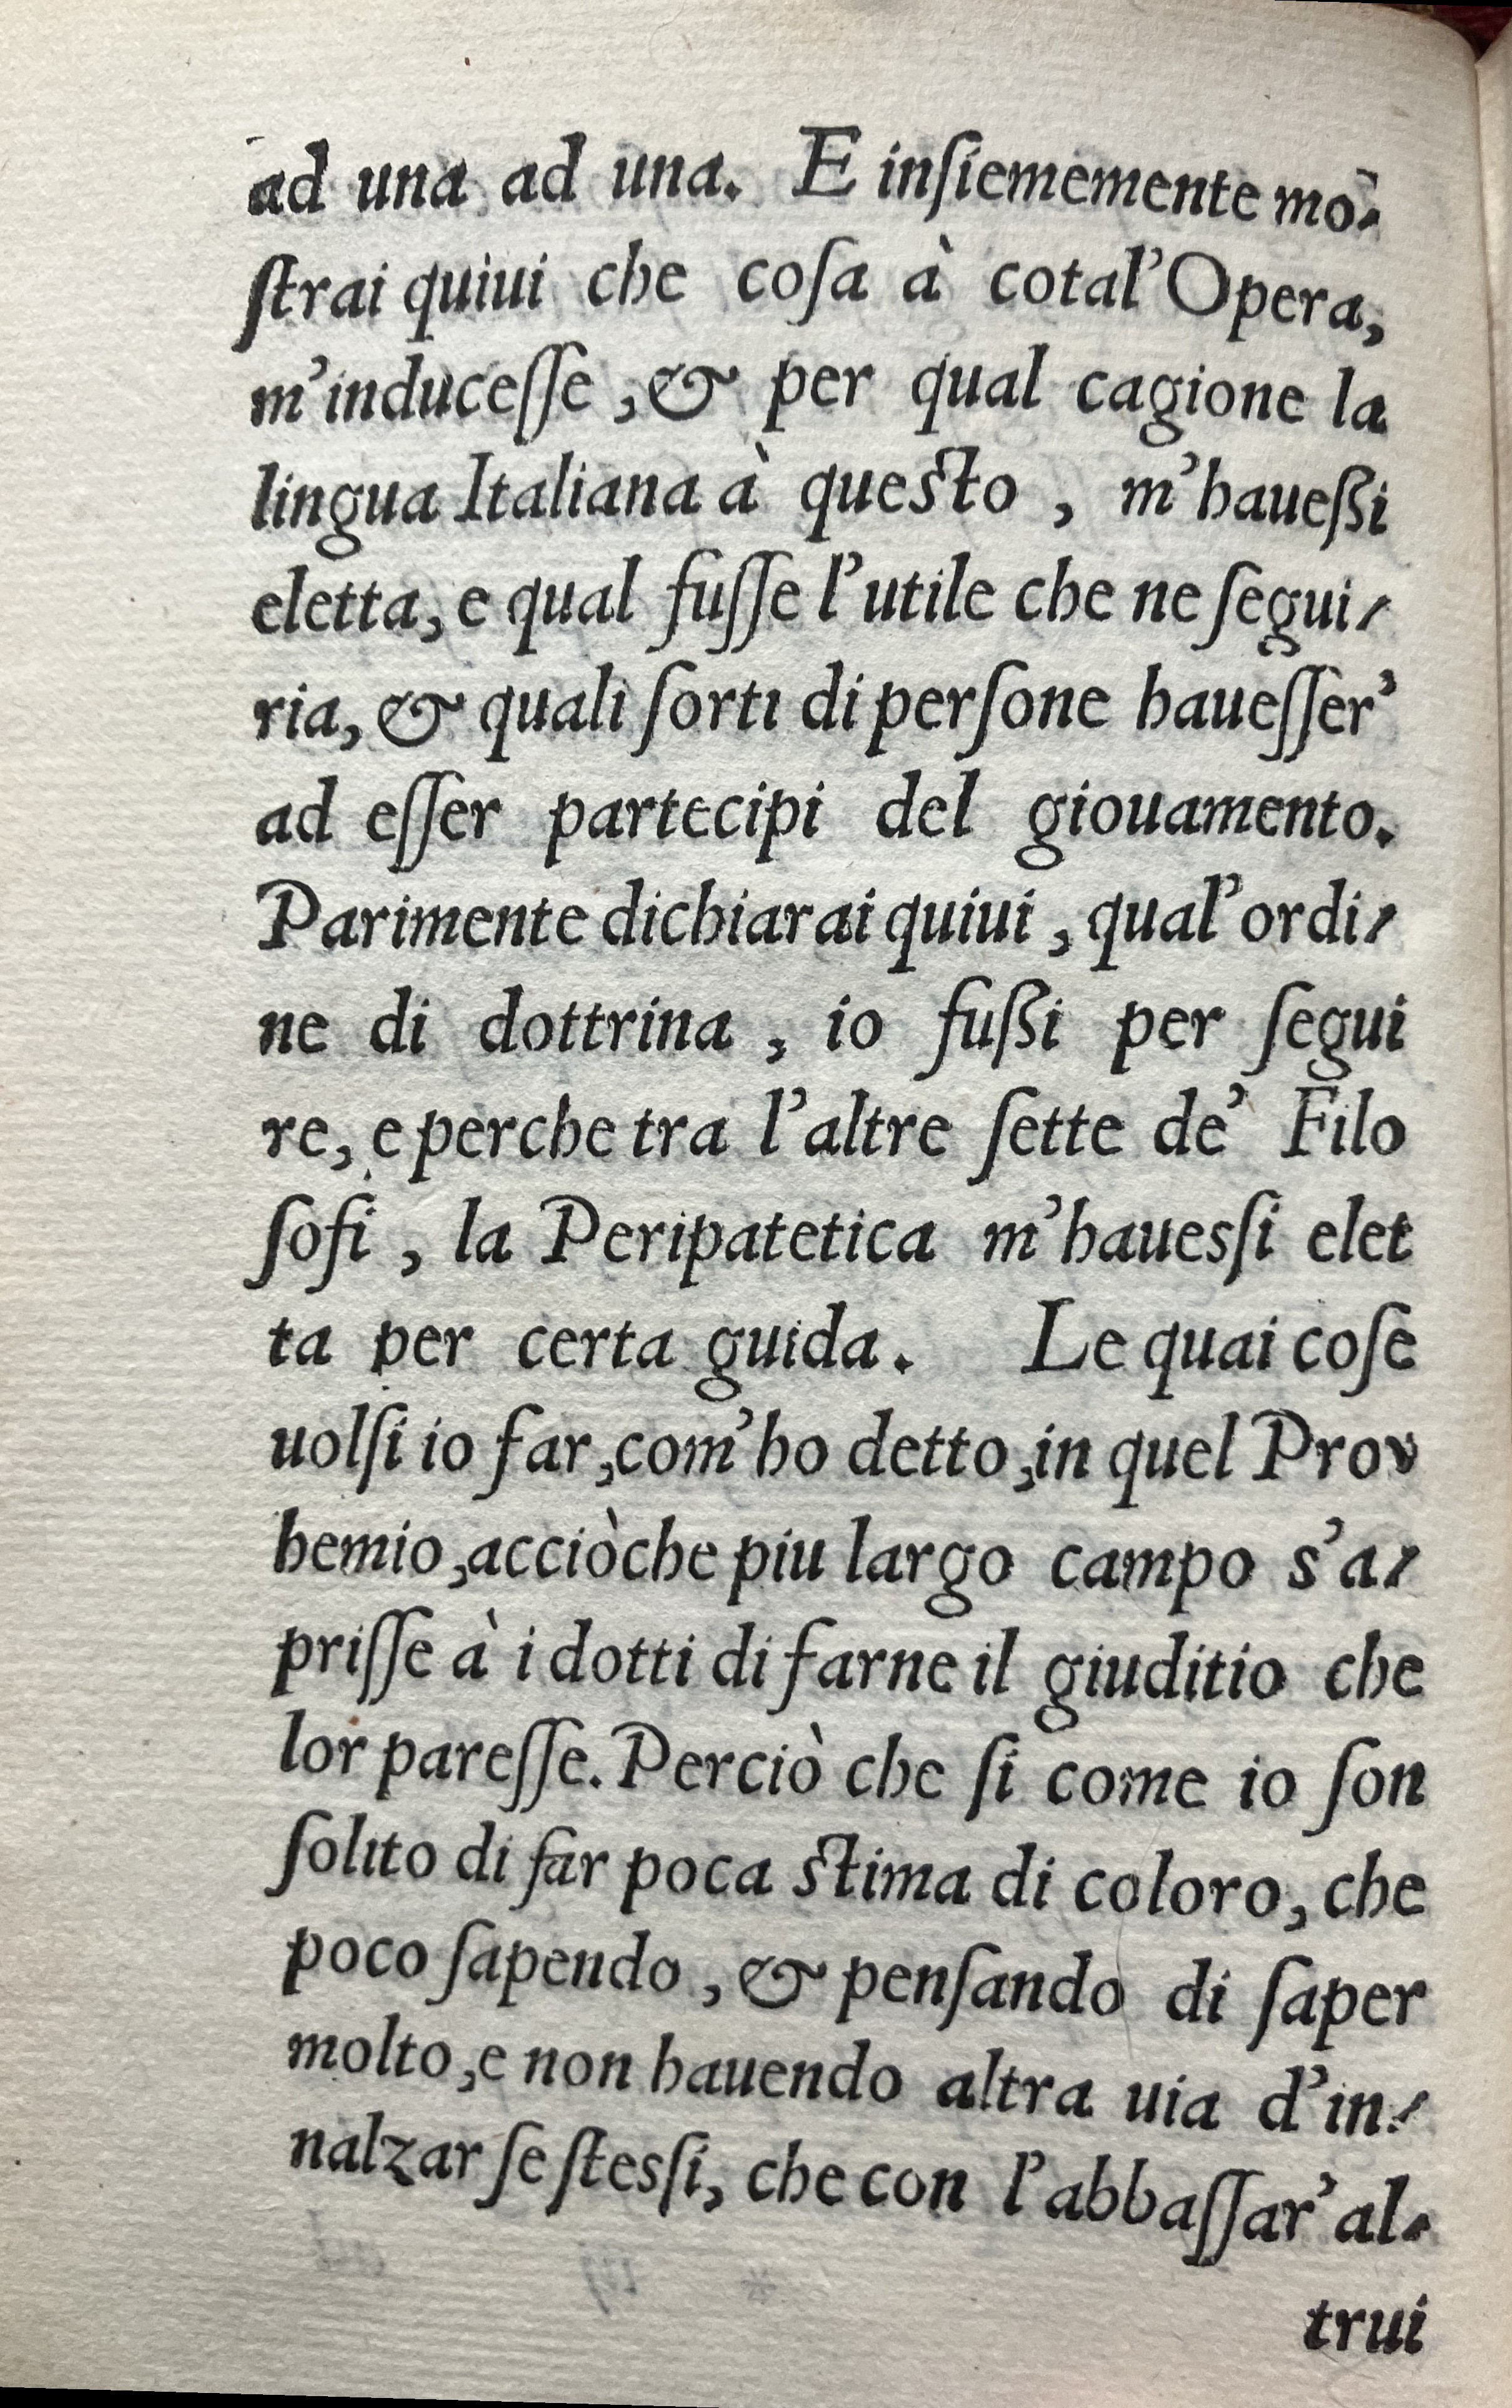 ad una ad una. E inſiememente mo-
ſtrai quiui che coſa à cotal'Opera,
m'induceſſe, & per qual cagione la
lingua Italiana à queſto, m'haueßi
eletta, e qual fuſſe l'utile che ne ſegui-
ria, & quali ſorti di perſone haueſſer'
ad eſſer partecipi del giouamento.
Parimente dichiarai quiui, qual'ordi-
ne di dottrina, io fußi per ſegui
re, e perche tra l'altre ſette de' Filo
ſofi, la Peripatetica m'hauesſi elet
ta per certa guida. Le quai coſe
uolſi io far, com'ho detto, in quel Prov
hemio, acciòche piu largo campo s'a-
priſſe à i dotti di farne il giuditio che
lor pareſſe. Perciò che ſi come io ſon
ſolito di far poca ſtima di coloro, che
poco ſapendo, & penſando di ſaper
molto, e non hauendo altra uia d'in-
nalzar ſe ſtesſi, che con l'abbaſſar'al-
trui